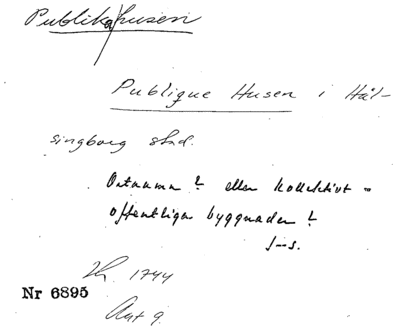 Publikahusen
Publique Husen i Häl-
singborg stad.
Ortnamn? eller kollektivt =
offentliga byggnader?
J--s.
1744
Nr 6895
Ant 9.